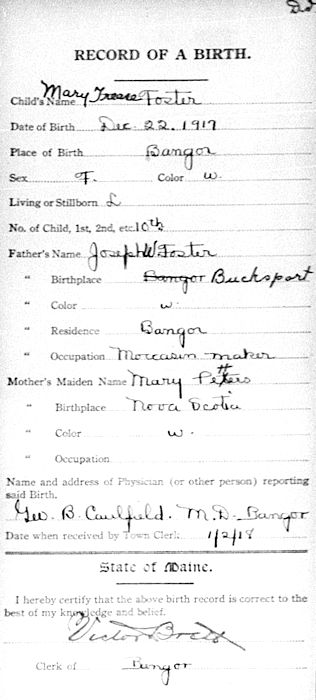 RECORD OF A BIRTH.
Child's Name Mary Trease Foster
Date of Birth Dec. 22, 1917
Place of Birth Bangor
Sex F. Color w.
Living or Stillborn L
No. of Child, 1st, 2nd, etc. 10th
Father's Name Joseph W. Foster
" Birthplace Bangor Bucksport
" Color w.
" Residence Bangor
" Occupation Moccasin maker
Mother's Maiden Name Mary Peters
" Birthplace Nova Scotia
" Color w.
" Occupation
Name and address of Physician (or other person) reporting
said Birth.
Geo. B. Caulfield. M.D. Bangor
Date when received by Town Clerk 1/2/18
State of Maine.
I hereby certify that the above birth record is correct to the
best of my knowledge and belief.
Victor Brett
Clerk of Bangor